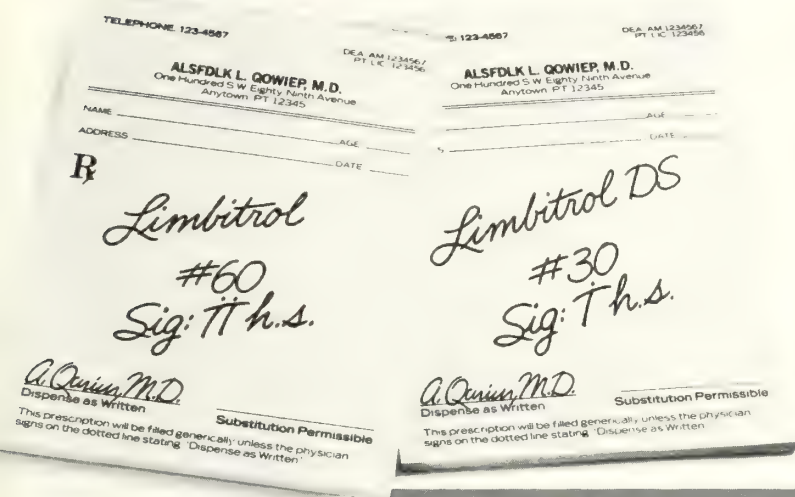 TELEPHONE: 123-4567
DEA AM 1234567
PT LIC 123456
ALSFDLK L. QOWIEP, M.D.
One Hundred S W Eighty Ninth Avenue
Anytown PT 12345
NAME
AGE
ADDRESS
DATE
Rx
Limbitrol
#60
Sig: ṪṪ h.s.
A. Qarius, M.D.
Dispense as Written
Substitution Permissible
This prescription will be filled generically unless the physician
signs on the dotted line stating 'Dispense as Written'
E: 123-4567
DEA AM 1234567
PT LIC 123456
ALSFDLK L. QOWIEP, M.D.
One Hundred S W Eighty Ninth Avenue
Anytown PT 12345
AGE
DATE
Limbitrol DS
#30
Sig: Ṫ h.s.
A. Qarius, M.D.
Dispense as Written
Substitution Permissible
This prescription will be filled generically unless the physician
signs on the dotted line stating 'Dispense as Written